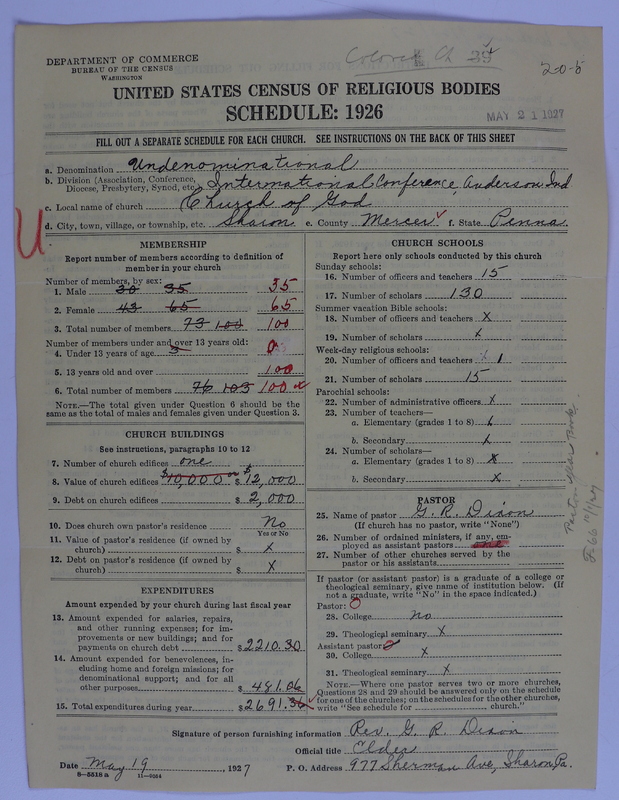 DEPARTMENT OF COMMERCE
BUREAU OF THE CENSUS
WASHINGTON
20-5
UNITED STATES CENSUS OF RELIGIOUS BODIES
SCHEDULE: 1926
MAY 21 1927
FILL OUT A SEPARATE SCHEDULE FOR EACH CHURCH. SEE INSTRUCTIONS ON THE BACK OF THIS SHEET
a. Denomination Undenominational
b. Division (Association, Conference, Diocese, Presbytery, Synod, etc.) International Conference, Anderson Ind
c. Local name of church Church of God
d. City, town, village, or township, etc. Sharon e. County Mercer f. State Penna.
U
MEMBERSHIP
Report number of members according to definition of
member in your church
Number of members, by sex:
1. Male 30 35 35
2. Female 43 65 65
3. Total number of members 73 100 100
Number of members under and over 13 years old:
4. Under 13 years of age 3 0
5. 13 years old and over 100
6. Total number of members 76 103 100
NOTE.—The total given under Question 6 should be the
same as the total of males and females given under Question 3.
CHURCH BUILDINGS
See instructions, paragraphs 10 to 12
7. Number of church edifices one
8. Value of church edifices $10,000 $12,000
9. Debt on church edifices $2,000
10. Does church own pastor's residence No
Yes or No
11. Value of pastor's residence (if owned by
church) $ X
12. Debt on pastor's residence (if owned by
church) $ X
EXPENDITURES
Amount expended by your church during last fiscal year
13. Amount expended for salaries, repairs,
and other running expenses; for im-
provements or new buildings; and for
payments on church debt $2210.30
14. Amount expended for benevolences, in-
cluding home and foreign missions; for
denominational support; and for all
other purposes $481.06
15. Total expenditures during year $2691.36
CHURCH SCHOOLS
Report here only schools conducted by this church
Sunday schools:
16. Number of officers and teachers 15
17. Number of scholars 130
Summer vacation Bible schools:
18. Number of officers and teachers X
19. Number of scholars X
Week-day religious schools:
20. Number of officers and teachers 1
21. Number of scholars 15
Parochial schools:
22. Number of administrative officers X
23. Number of teachers—
a. Elementary (grades 1 to 8) X
b. Secondary X
24. Number of scholars—
a. Elementary (grades 1 to 8) X
b. Secondary X
PASTOR
25. Name of pastor G. R. Dixon
(If church has no pastor, write "None")
26. Number of ordained ministers, if any, em-
ployed as assistant pastors one
27. Number of other churches served by the
pastor or his assistants
If pastor (or assistant pastor) is a graduate of a college or
theological seminary, give name of institution below. (If
not a graduate, write "No" in the space indicated.)
Pastor: 0
28. College no
29. Theological seminary X
Assistant pastor:
30. College X
31. Theological seminary X
NOTE.—Where one pastor serves two or more churches,
Questions 28 and 29 should be answered only on the schedule
for one of the churches; on the schedules for the other churches,
write "See schedule for church."
Signature of person furnishing information Rev. G. R. Dixon
Official title Elder
Date May 19, 1927 P. O. Address 977 Sherman Ave, Sharon, Pa.
8—5518 a 11—9064